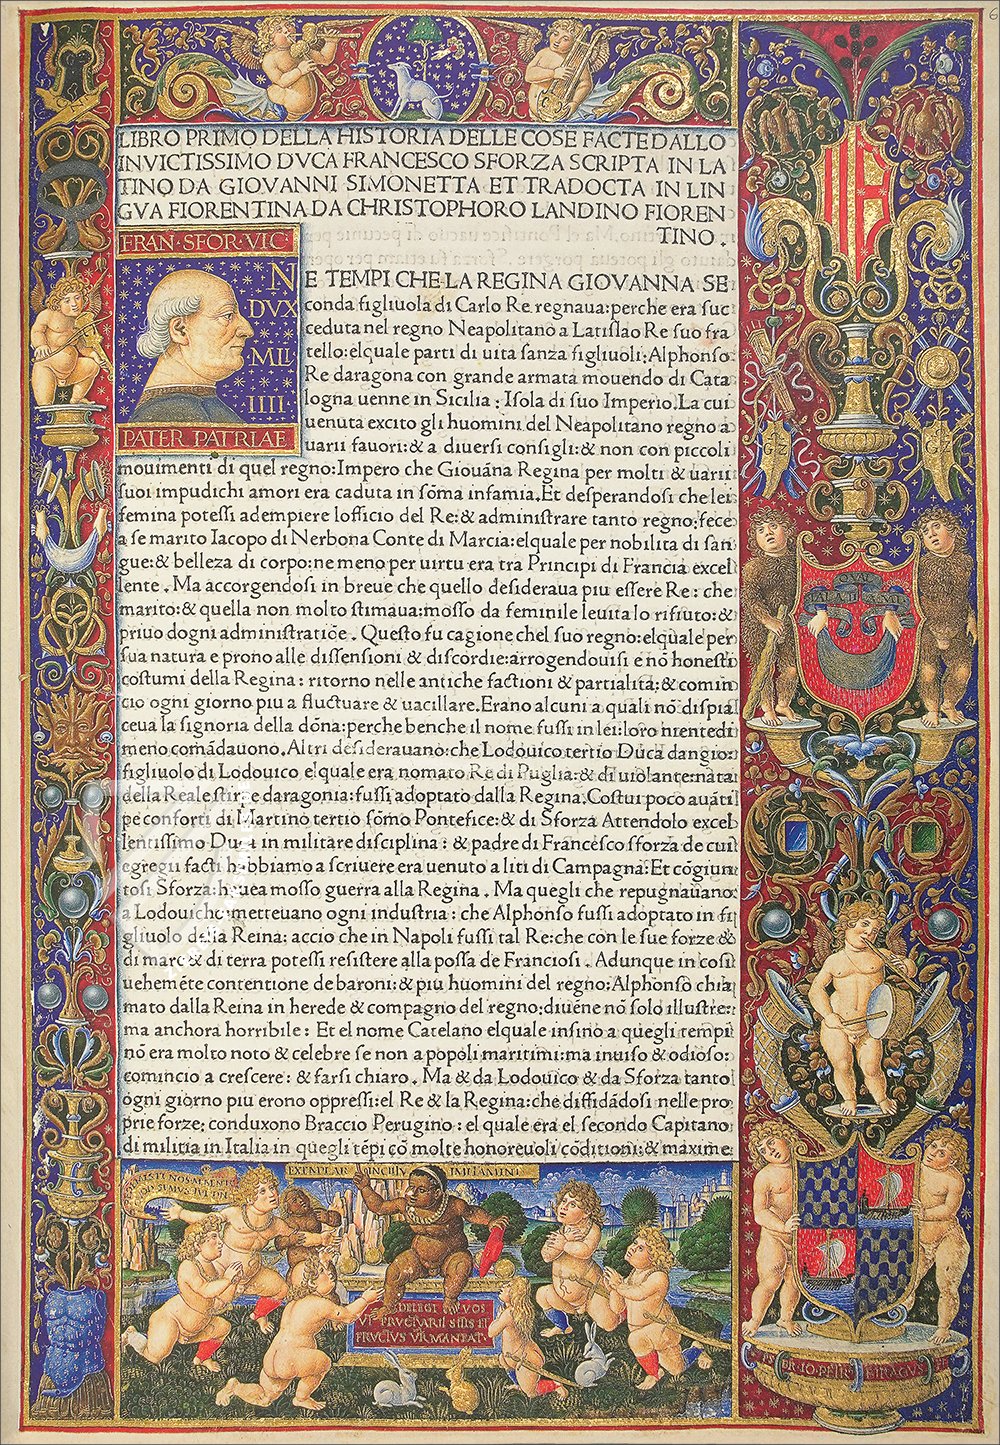 LIBRO PRIMO DELLA HISTORIA DELLE COSE FACTE DALLO
INVICTISSIMO DVCA FRANCESCO SFORZA SCRIPTA IN LA
TINO DA GIOVANNI SIMONETTA ET TRADOCTA IN LIN
GVA FIORENTINA DA CHRISTOPHORO LANDINO FIOREN
TINO.
FRAN·SFOR·VIC·
DVX
MIL
IIII
PATER PATRIAE
NE TEMPI CHE LA REGINA GIOVANNA SE
conda figliuola di Carlo Re regnaua:perche era suc
ceduta nel regno Neapolitano a Latislao Re suo fra
tello:elquale parti di uita sanza figliuoli:Alphonso
Re daragona con grande armata mouendo di Cata
logna uenne in Sicilia: Isola di suo Imperio.La cui
uenuta excito gli huomini del Neapolitano regno a
uarii fauori:& a diuersi consigli:& non con piccoli
mouimenti di quel regno:Impero che Giouāna Regina per molti & uarii
suoi impudichi amori era caduta in sōma infamia.Et desperandosi che lei
femina potessi adempiere lofficio del Re:& administrare tanto regno:fece
a se marito Iacopo di Nerbona Conte di Marcia:elquale per nobilita di san
gue:& belleza di corpo:ne meno per uirtu era tra Principi di Francia excel
lente. Ma accorgendosi in breue che quello desideraua piu essere Re: che
marito:& quella non molto stimaua:mosso da feminile leuita lo rifiuto:&
priuo dogni administratiōe. Questo fu cagione chel suo regno:elquale per
sua natura e prono alle dissensioni & discordie:arrogendouisi e nō honesti
costumi della Regina: ritorno nelle antiche factioni & partialita:& comin
cio ogni giorno piu a fluctuare & uacillare.Erano alcuni a quali nō dispia
ceua la signoria della dōna:perche benche il nome fussi in lei:loro niente di
meno comādauono.Altri desiderauano:che Lodouico tertio Duca dangio:
figliuolo di Lodouico elquale era nomato Re di Puglia:& di uiolante nata
della Reale stirpe daragonia:fussi adoptato dalla Regina.Costui poco auāti
pe conforti di Martino tertio sōmo Pontefice:& di Sforza Attendolo excel
lentissimo Duca in militare disciplina: & padre di Francesco sforza de cui
egregii facti habbiamo a scriuere era uenuto a liti di Campagna:Et cōgiun
tosi Sforza:hauea mosso guerra alla Regina. Ma quegli che repugnauano
a Lodouicho:metteuano ogni industria: che Alphonso fussi adoptato in fi
gliuolo della Reina: accio che in Napoli fussi tal Re:che con le sue forze &
di mare & di terra potessi resistere alla possa de Franciosi. Adunque in cosi
uehemēte contentione de baroni:& piu huomini del regno:Alphonso chia
mato dalla Reina in herede & compagno del regno:diuēne nō solo illustre:
ma anchora horribile: Et el nome Catelano elquale insino a quegli tempi
nō era molto noto & celebre se non a popoli maritimi:ma inuiso & odioso:
comincio a crescere: & farsi chiaro. Ma & da Lodouico & da Sforza tanto
ogni giorno piu erono oppressi:el Re & la Regina:che diffidādosi nelle pro
prie forze: conduxono Braccio Perugino: el quale era el secondo Capitano
di militia in Italia in quegli tēpi cō molte honoreuoli cōditioni:& maxime
DELEGI VOS